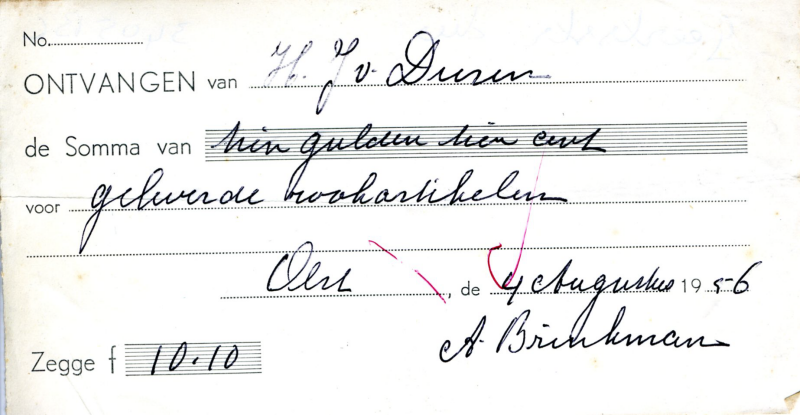 No.
ONTVANGEN van H. J v. Duren
de Somma van tien gulden tien cent
voor geleverde rookartikelen
Olst, de 4 Augustus 19 56
A. Brinkman
Zegge f 10.10